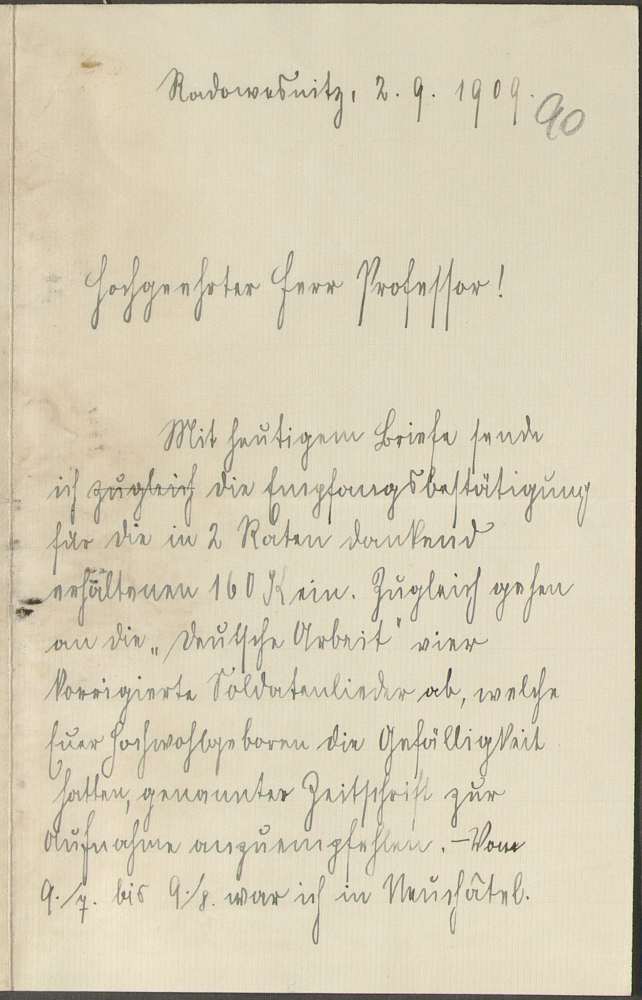 Radowesnitz, 2. 9. 1909.
90
Hochgeehrter Herr Professor!
Mit heutigem Briefe sende
ich zugleich die Empfangsbestätigung
für die in 2 Raten dankend
erhaltenen 160 K ein. Zugleich gehen
an die „Deutsche Arbeit" vier
korrigierte Soldatenlieder ab, welche
Euer Hochwohlgeboren die Gefälligkeit
hatten, genannter Zeitschrift zur
Aufnahme anzuempfehlen. – Vom
9./7. bis 9./8. war ich in Neuchâtel.